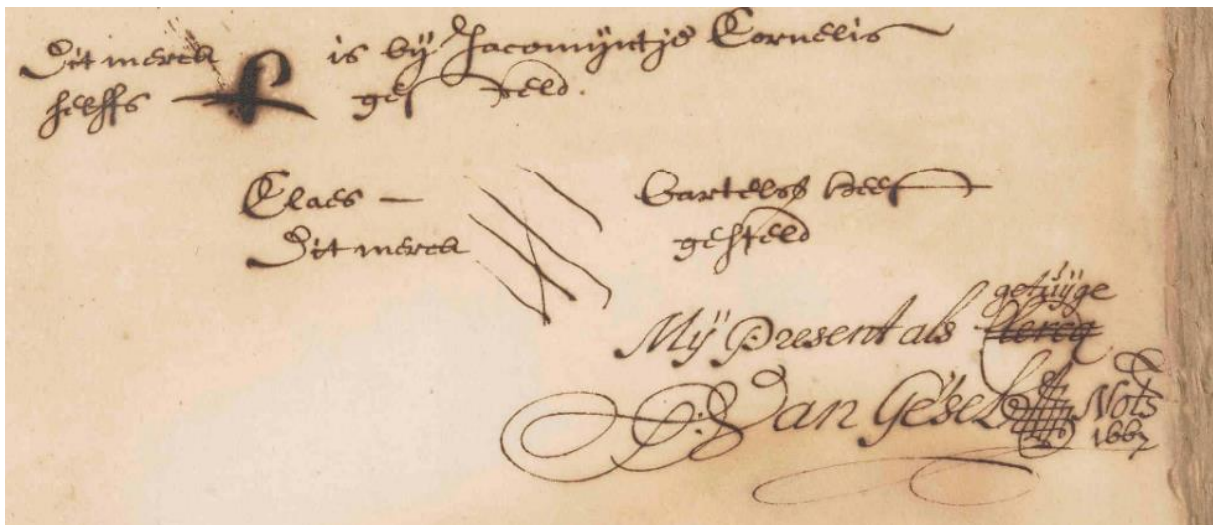 Dit merck is bij Jacomijntje Cornelis
selffs gesteld.
Claes Bartelss heeft
Dit merck gesteld
getuijge
Mij Present als Clercq
Van Gesel Nots
1667